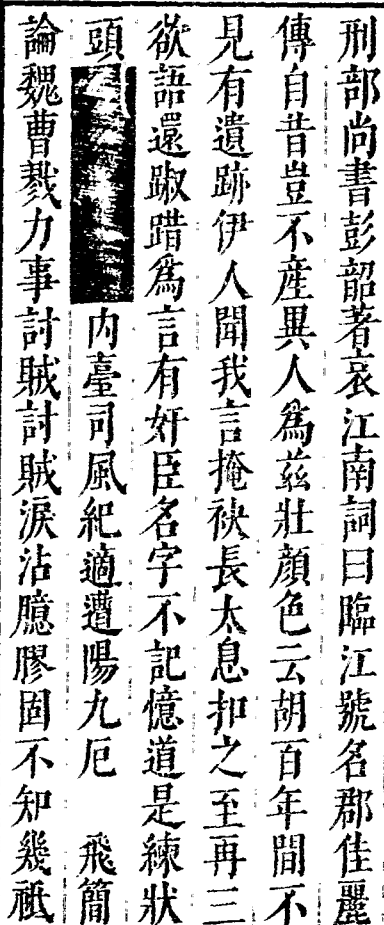 刑部尚書彭韶著哀江南詞曰臨江號名郡佳麗
傳自昔豈不產異人為茲壯顔色云胡百年間不
見有遺跡伊人聞我言掩袂長太息扣之至再三
欲語還踧踖為言有奸臣名字不記憶道是練狀
頭 内臺司風紀適遭陽九厄 飛簡
論魏曹戮力事討賊討賊淚沾臆膠固不知幾祗